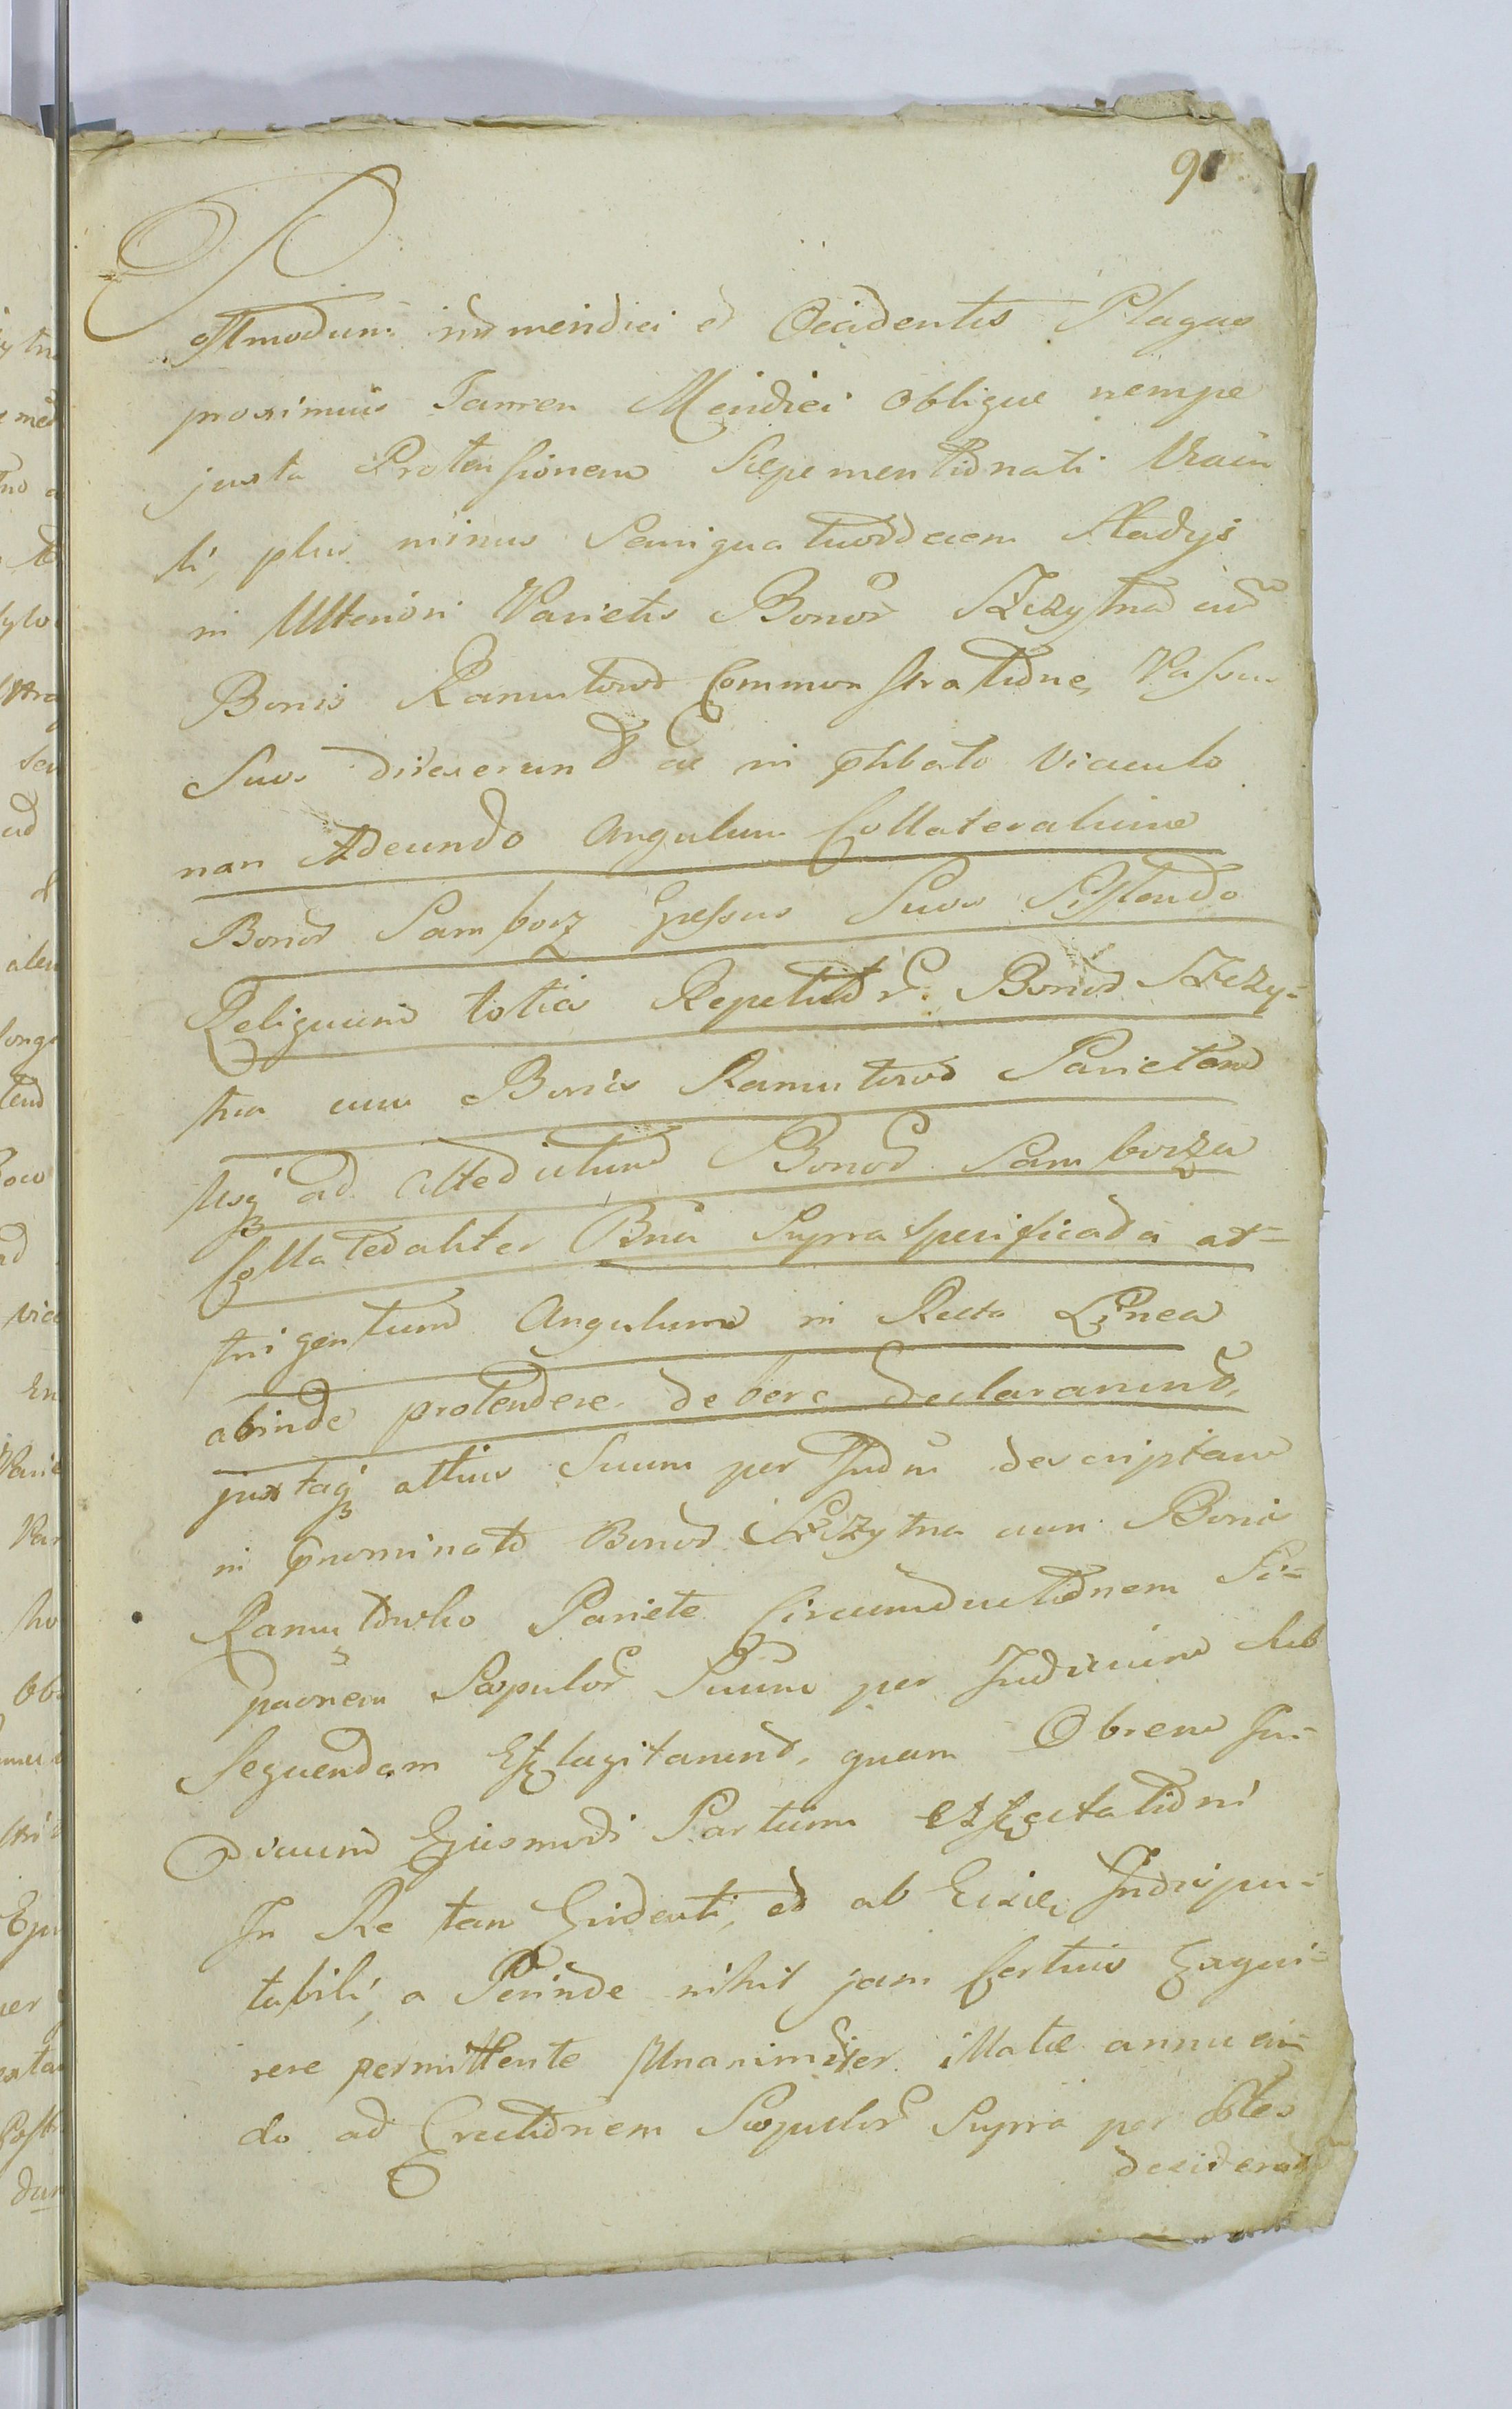 91
Postmodum inter meridiei et Occidentis Plagas
proximius Tamen Meridiei Oblique nempe
juxta Protensionem Saepementionati Viacu
li, plus minus Semiquatuordecem Stadys
in Ulteriori Parietis Bonor Szczytna cum
Bonis Ramutowo Commonstratione, Passus
Suos direxerunt ac in phbato Viaculo
non Adeundo Angulum Collateralium
Bonor Samborz Gressus Suos Sistendo
Reliquum toties Repetitor Bonor Szczy-
tna cum Bonis Ramutowo Parietem
Usq ad Altedictum Bonor Samborza
Collatedaliter Bna Supraspecificata at-
tingentem Angulum in Recta Linea
abinde protendere debere declararunt,
juxtaq attius Suum per Judm descriptam
in pnominato Bonor Szczytna cum Bonis
Ramutowko Pariete Circumductionem Si-
paonem Scopulor Suum per Judicium Sub
Sequendam Efflagitarunt, quam Obrem Ju-
dicium Ejusmodi Partium Affectationi
In Re tam Evidenti, et ab Eisde Indispu-
tabili, a Perinde nihil jam Certius Exqui-
rere permittente Unanimiter illatae annuen
do ad Erectionem Scopulor Supra per Ptes
desiderat